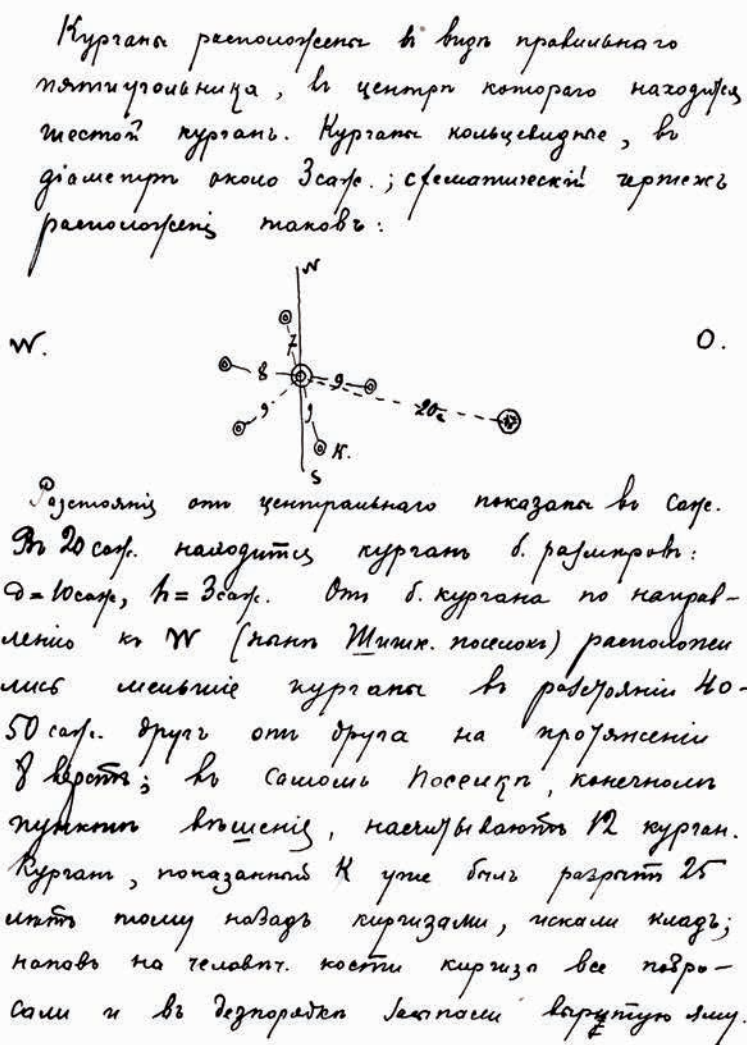 Курганы расположены въ видѣ правильнаго
пятиугольника, въ центрѣ котораго находится
шестой курганъ. Курганы кольцевидные, въ
діаметрѣ около 3 саж.; схематическій чертежъ
расположенія таковъ:
N
W.
O.
7
8
9
20 с.
9
9
К.
S
Разстоянія отъ центральнаго показаны въ саж.
Въ 20 саж. находится курганъ б. размѣровъ:
d = 10 саж, h = 3 саж. Отъ б. кургана по направ-
ленію къ W (нынѣ Шишк. поселокъ) расположи
лись меньшіе курганы въ разстояніи 40-
50 саж. другъ отъ друга на протяженіи
8 верстъ; въ самомъ поселкѣ, конечномъ
пунктѣ, насчитываютъ 12 курган.
Курганъ, показанный К уже былъ разрытъ 25
лѣтъ тому назадъ киргизами, искали кладъ;
напавъ на человѣч. кости киргизы все побро-
сали и въ безпорядкѣ засыпали вырытую яму.